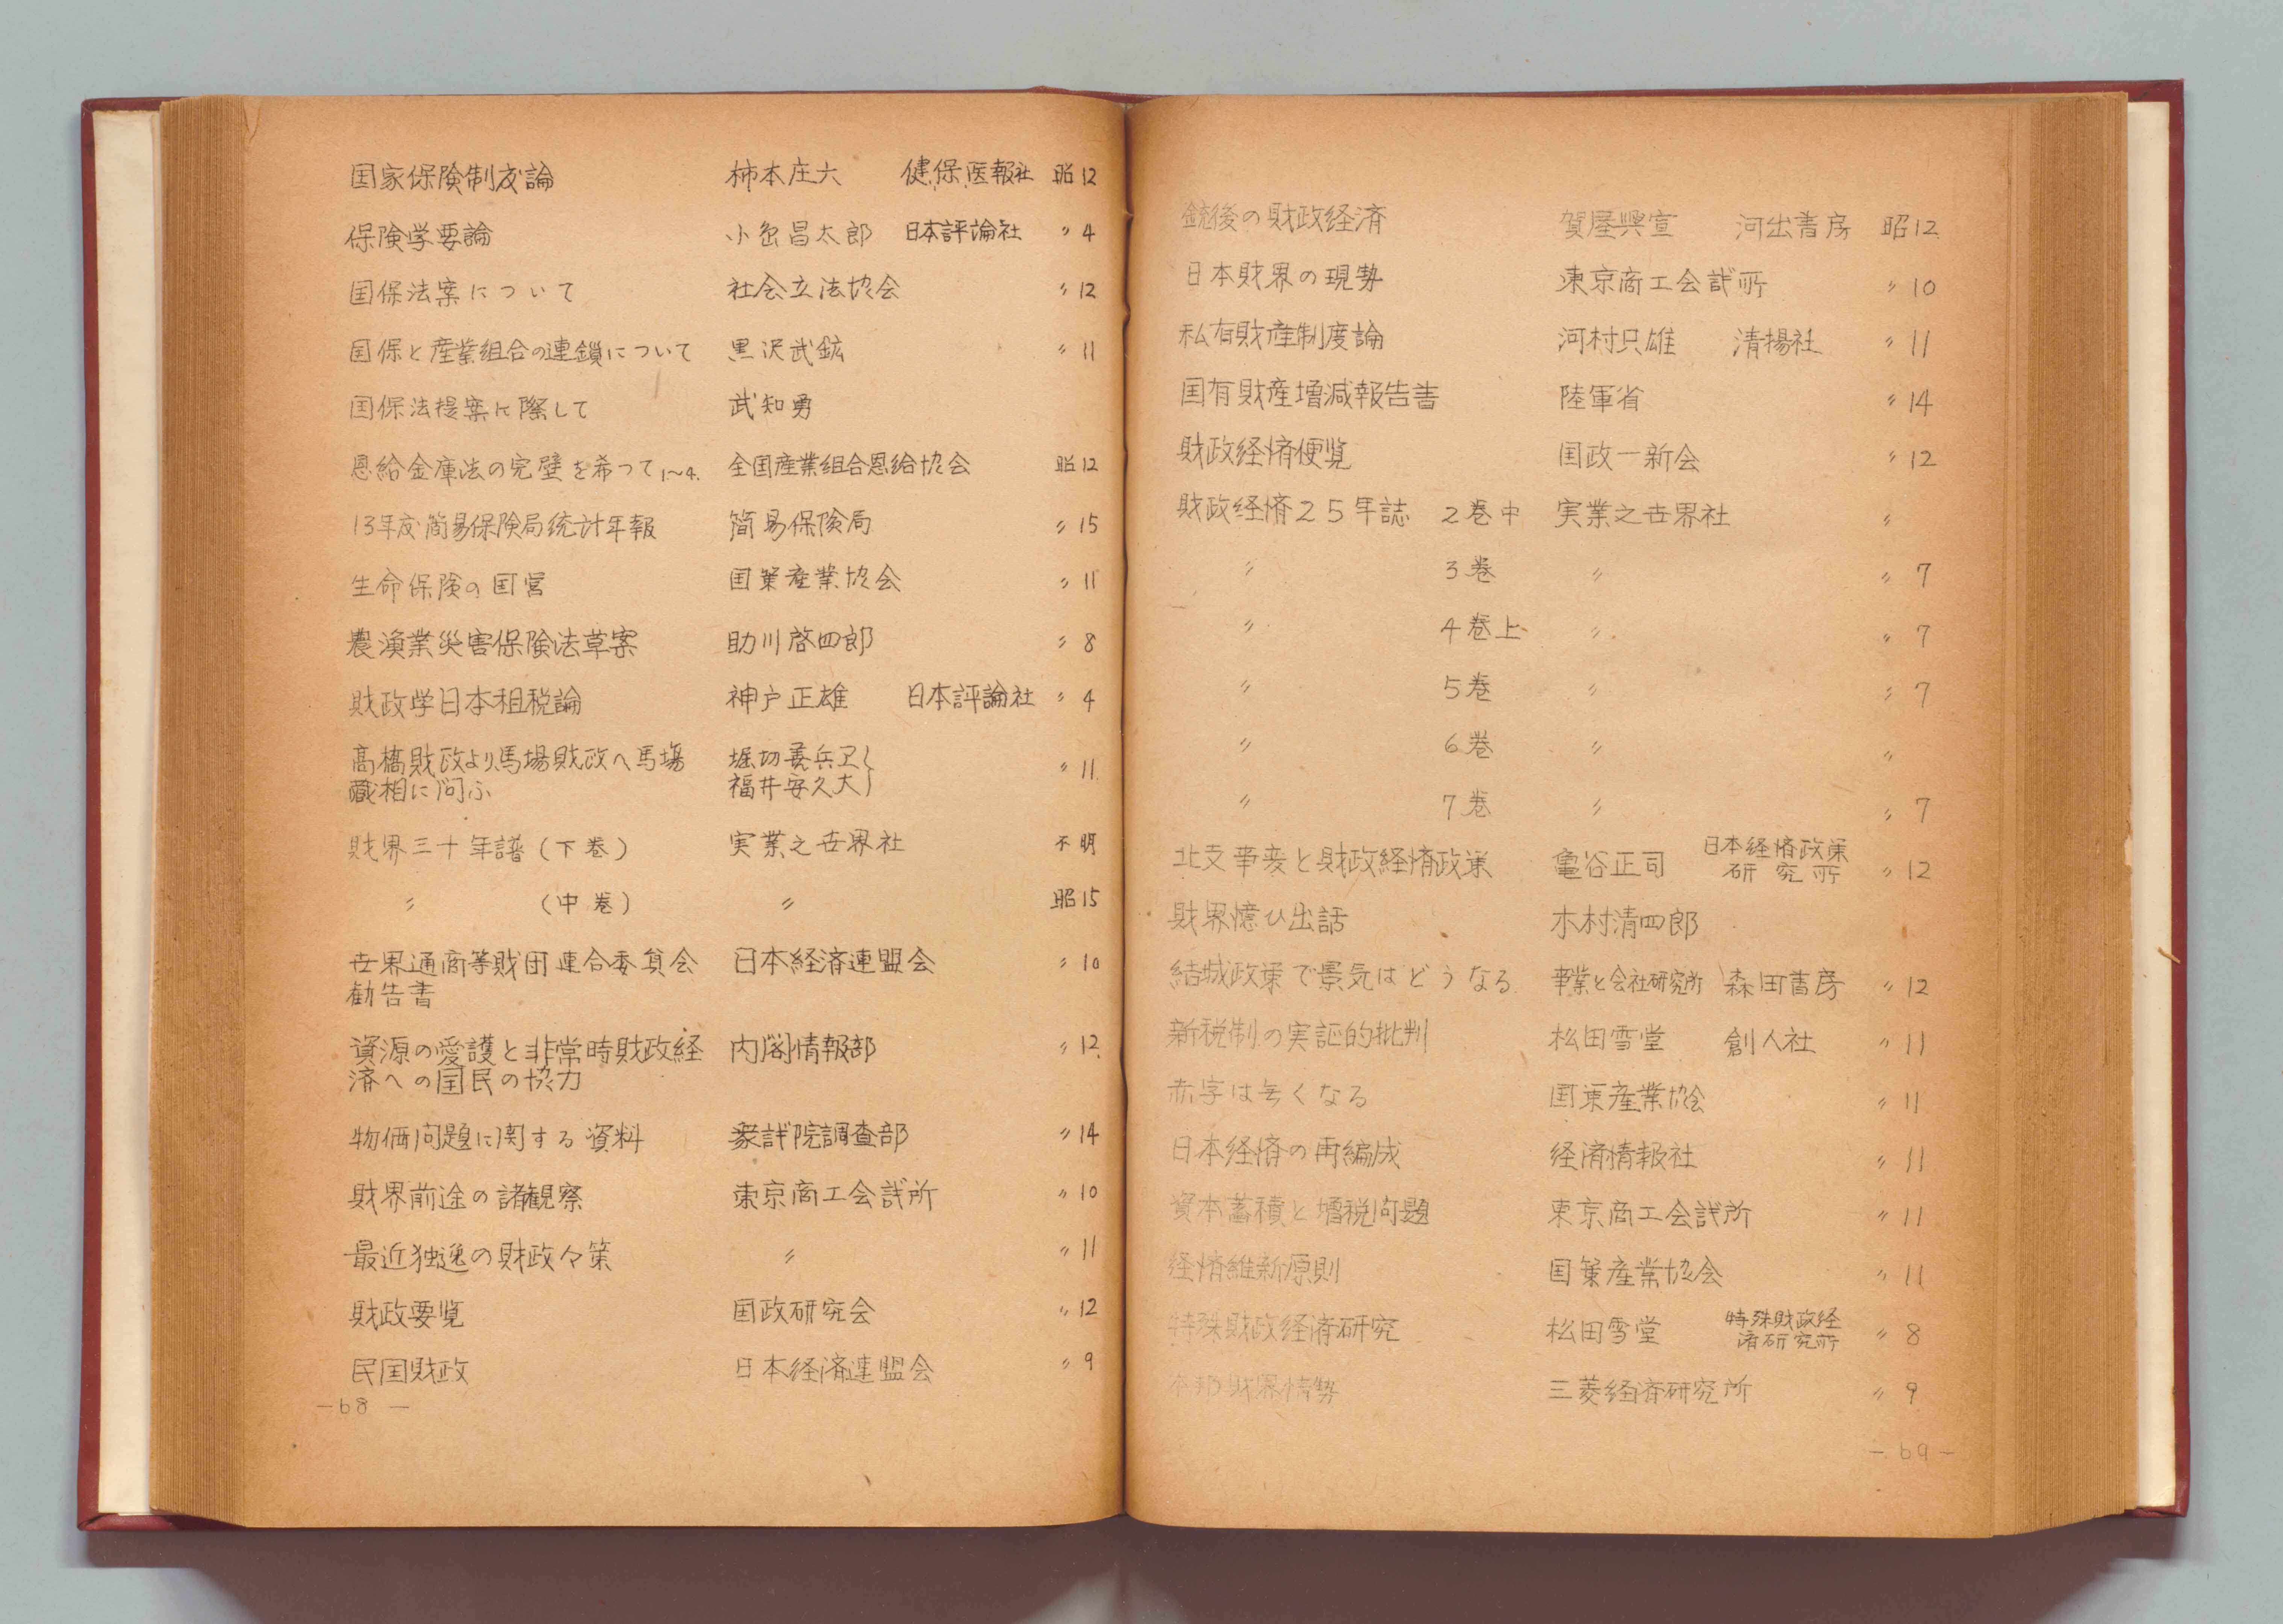 国家保険制度論 柿本庄六 健保医報社 昭12
保険学要論 小島昌太郎 日本評論社 〃4
国保法案について 社会立法協会 〃12
国保と産業組合の連鎖について 黒沢武鉱 〃11
国保法提案に際して 武知勇
恩給金庫法の完壁を希つて1~4. 全国産業組合恩給協会 昭12
13年度簡易保険局統計年報 簡易保険局 〃15
生命保険の国営 国策産業協会 〃11
農漁業災害保険法草案 助川啓四郎 〃8
財政学日本租税論 神戸正雄 日本評論社 〃4
高橋財政より馬場財政へ馬場 堀切善兵衛
蔵相に問ふ 福井安久大 〃11
財界三十年譜(下巻) 実業之世界社 不明
〃 (中巻) 〃 昭15
世界通商等財団連合委員会 日本経済連盟会 〃10
勧告書
資源の愛護と非常時財政経 内閣情報部 〃12
済への国民の協力
物価問題に関する資料 衆議院調査部 〃14
財界前途の諸観察 東京商工会議所 〃10
最近独逸の財政々策 〃 〃11
財政要覧 国政研究会 〃12
民国財政 日本経済連盟会 〃9
—68—
銃後の財政経済 賀屋興宣 河出書房 昭12
日本財界の現勢 東京商工会議所 〃10
私有財産制度論 河村只雄 清揚社 〃11
国有財産増減報告書 陸軍省 〃14
財政経済便覧 国政一新会 〃12
財政経済25年誌 2巻中 実業之世界社 〃
〃 3巻 〃 〃7
〃 4巻上 〃 〃7
〃 5巻 〃 〃7
〃 6巻 〃 〃
〃 7巻 〃 〃7
北支事変と財政経済政策 亀谷正司 日本経済政策研究所 〃12
財界憶ひ出話 木村清四郎
結城政策で景気はどうなる 事業と会社研究所 森田書房 〃12
新税制の実証的批判 松田雪堂 創人社 〃11
赤字は無くなる 国策産業協会 〃11
日本経済の再編成 経済情報社 〃11
資本蓄積と増税問題 東京商工会議所 〃11
経済維新原則 国策産業協会 〃11
特殊財政経済研究 松田雪堂 特殊財政経済研究所 〃8
本邦財界情勢 三菱経済研究所 〃9
—69—